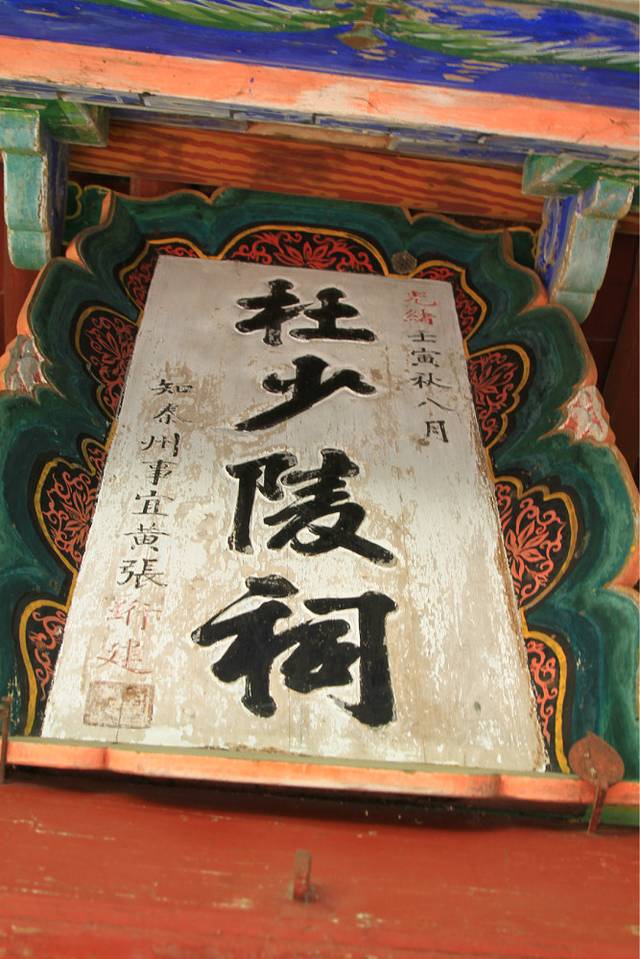 光緒壬寅秋八月
杜少陵祠
知秦州事宜黄張珩建